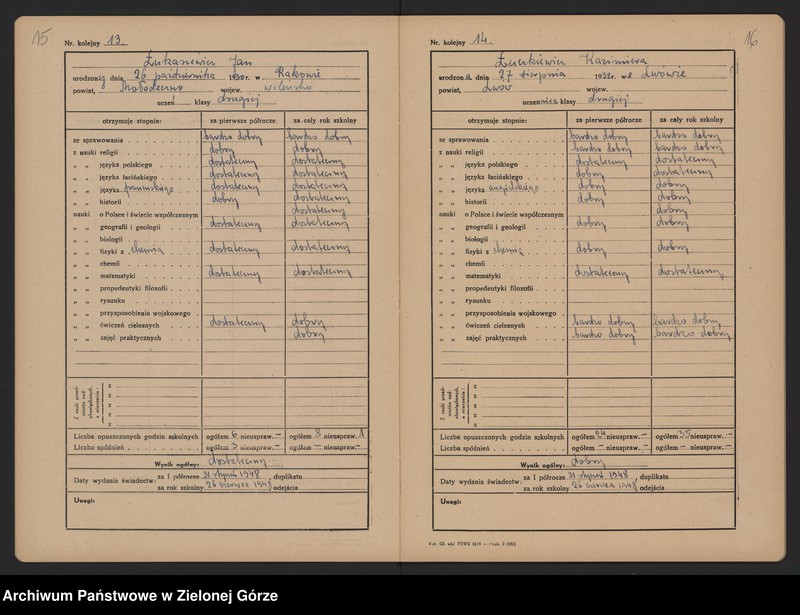 15
Nr. kolejny 13.
Łukaszewicz Jan
urodzony dnia 26 października 1930 r. w Rakowie
powiat, Mołodeczno wojew. wileńskie
uczeń klasy drugiej
otrzymuje stopnie: za pierwsze półrocze za cały rok szkolny
ze sprawowania bardzo dobry bardzo dobry
z nauki religii dobry dobry
„ „ języka polskiego dostateczny dostateczny
„ „ języka łacińskiego dostateczny dostateczny
„ „ języka francuskiego dostateczny dostateczny
„ „ historii dobry dostateczny
nauki o Polsce i świecie współczesnym dostateczny
„ „ geografii i geologii dostateczny dostateczny
„ „ biologii
„ „ fizyki z chemią dostateczny dostateczny
„ „ chemii
„ „ matematyki dostateczny dostateczny
„ „ propedeutyki filozofii
„ „ rysunku
„ „ przysposobienia wojskowego
„ „ ćwiczeń cielesnych dostateczny dobry
„ „ zajęć praktycznych dobry
Z nauki przedmiotów nadobowiązkowych, a mianowicie:
Liczba opuszczonych godzin szkolnych ogółem 6 nieuspraw. – ogółem 8 nieuspraw. 1
Liczba spóźnień ogółem 3 nieuspraw. – ogółem – nieuspraw. –
Wynik ogólny: dostateczny
Daty wydania świadectw: za I półrocze 31 styczeń 1948, duplikatu
za rok szkolny 26 czerwca 1948 odejścia
Uwagi:
16
Nr. kolejny 14.
Żurkiewicz Kazimiera
urodzona dnia 27 sierpnia 1932 r. we Lwowie
powiat, Lwów wojew.
uczennica klasy drugiej
otrzymuje stopnie: za pierwsze półrocze za cały rok szkolny
ze sprawowania bardzo dobry bardzo dobry
z nauki religii bardzo dobry bardzo dobry
„ „ języka polskiego dostateczny dostateczny
„ „ języka łacińskiego dobry dostateczny
„ „ języka angielskiego dobry dobry
„ „ historii dobry dobry
nauki o Polsce i świecie współczesnym dobry
„ „ geografii i geologii dobry dobry
„ „ biologii
„ „ fizyki z chemią dobry dobry
„ „ chemii
„ „ matematyki dostateczny dostateczny
„ „ propedeutyki filozofii
„ „ rysunku
„ „ przysposobienia wojskowego
„ „ ćwiczeń cielesnych bardzo dobry bardzo dobry
„ „ zajęć praktycznych bardzo dobry bardzo dobry
Z nauki przedmiotów nadobowiązkowych, a mianowicie:
Liczba opuszczonych godzin szkolnych ogółem 24 nieuspraw. – ogółem 35 nieuspraw. –
Liczba spóźnień ogółem – nieuspraw. – ogółem – nieuspraw. –
Wynik ogólny: dobry
Daty wydania świadectw: za I półrocze 31 styczeń 1948, duplikatu
za rok szkolny 26 czerwca 1948 odejścia
Uwagi:
Archiwum Państwowe w Zielonej Górze